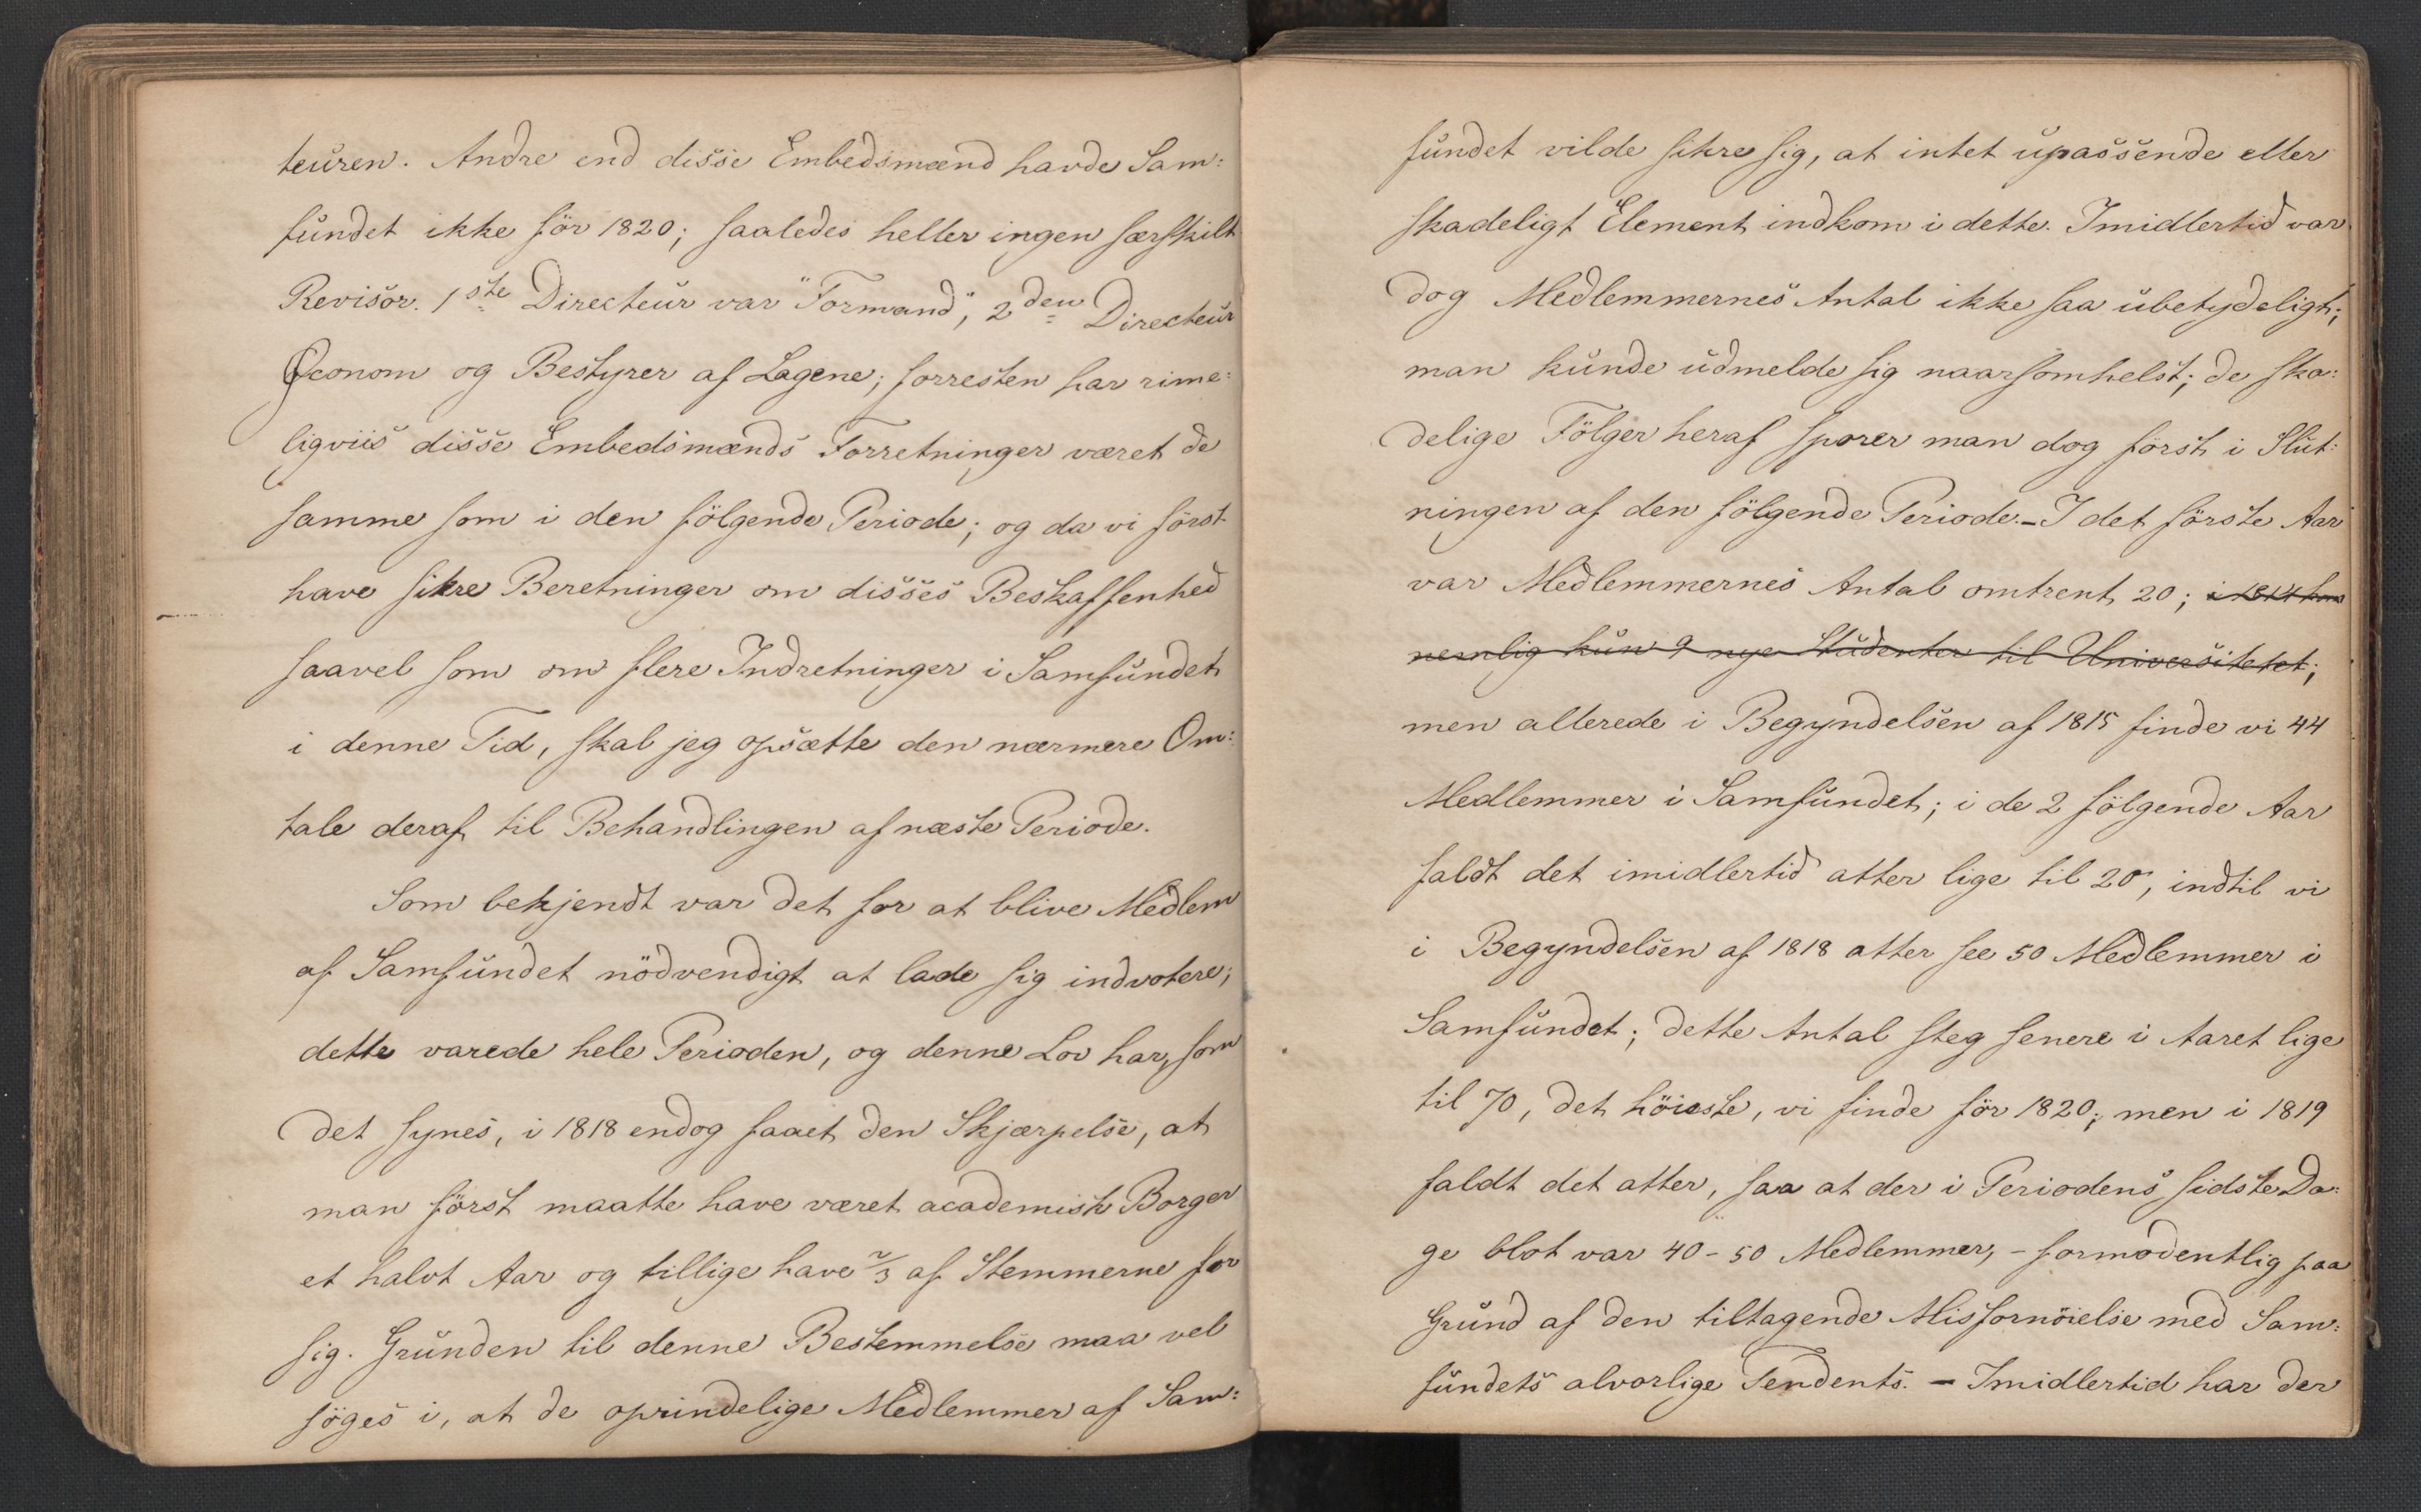 teuren. Andre end disse Embedsmænd havde Sam:
fundet ikke för 1820; saaledes heller ingen særskilt
Revisor. 1ste Directeur var "Formand", 2den Directeur
Oeconom og Bestyrer af Lagene; forresten har rime:
ligviis disse Embedsmænds Forretninger været de
samme som i den fölgende Periode; og da vi först
have sikre Beretninger om disses Beskaffenhed
saavel som om flere Indretninger i Samfundet
i denne Tid, skal jeg opsætte den nærmere Om:
tale deraf til Behandlingen af næste Periode.
Som bekjendt var det for at blive Medlem
af Samfundet nödvendigt at lade sig indvotere;
dette varede hele Perioden, og denne Lov har, som
det synes, i 1818 endog faaet den Skjærpelse, at
man först maatte have været academisk Borger
et halvt Aar og tillige have 2/3 af Stemmerne for
sig. Grunden til denne Bestemmelse maa vel
söges i, at de oprindelige Medlemmer af Sam:
fundet vilde sikre sig, at intet upassende eller
skadeligt Element indkom i dette. Imidlertid var
dog Medlemmernes Antal ikke saa ubetydeligt;
man kunde udmelde sig naarsomhelst; de ska:
delige Fölger heraf sporer man dog först i Slut:
ningen af den fölgende Periode. - I det förste Aar
var Medlemmernes Antal omtrent 20; i 1814 kom
nemlig kun 9 nye Studenter til Universitetet;
men allerede i Begyndelsen af 1815 finde vi 44
Medlemmer i Samfundet; i de 2 fölgende Aar
faldt det imidlertid atter lige til 20, indtil vi
i Begyndelsen af 1818 atter see 50 Medlemmer i
Samfundet; dette Antal steg senere i Aaret lige
til 70, det höieste, vi finde för 1820; men i 1819
faldt det atter, saa at der i Periodens sidste Da:
ge blot var 40-50 Medlemmer, - formodentlig paa
Grund af den tiltagende Misfornöielse med Sam:
fundets alvorlige Tendents. - Imidlertid har der